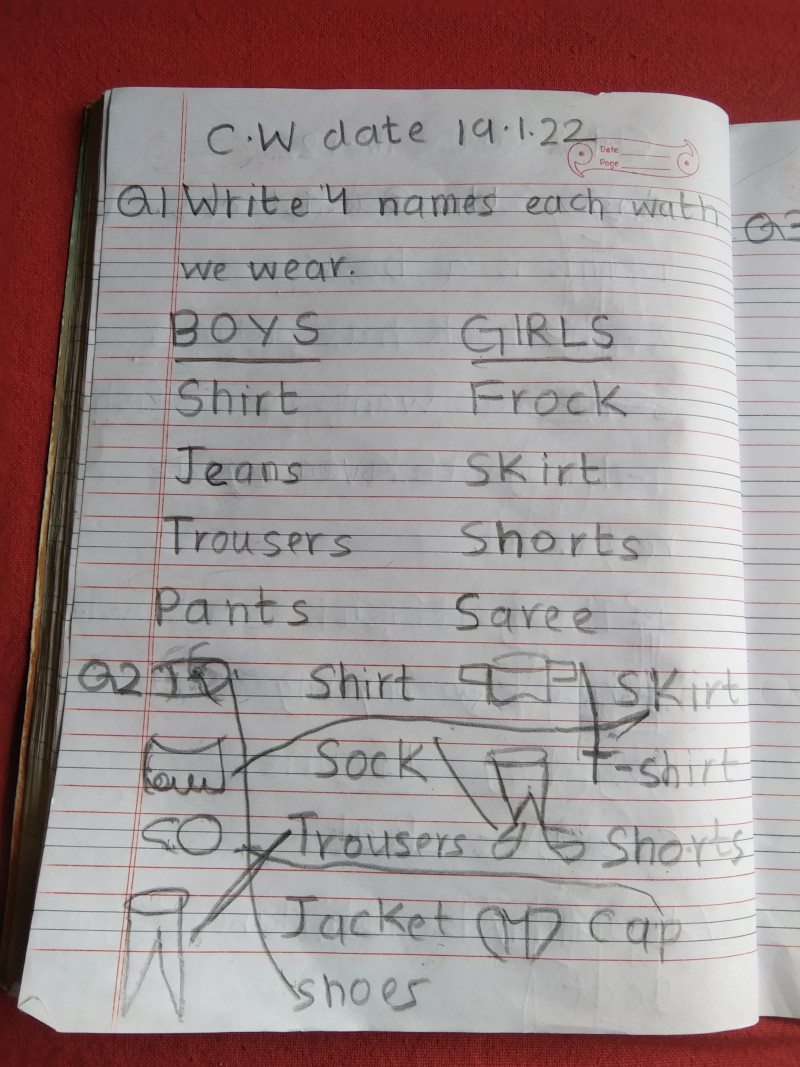 C.W date 19.1.22
Date
Page
Q1 Write 4 names each wath
we wear.
BOYS GIRLS
Shirt Frock
Jeans Skirt
Trousers Shorts
Pants Saree
Q2 Shirt Skirt
Sock T-shirt
Trousers Shorts
Jacket Cap
shoes
Q3